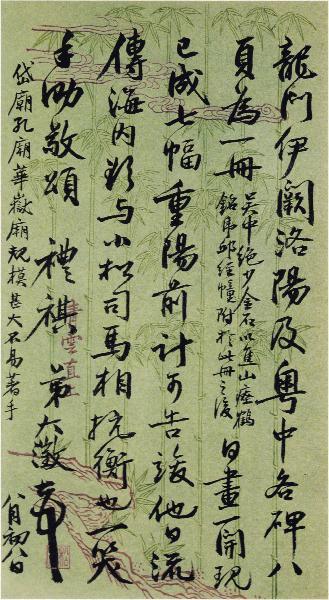 龍門伊闕洛陽及粵中各碑八
頁為一冊吳中絕少金石以焦山瘞鶴
銘虎邱經幢附於此冊之後日畫一開現
已成七幅重陽前計可告竣他日流
傳海內頗與小松司馬相抗衡也一笑
手泐敬頌禮祺弟大澂頓首
岱廟孔廟華嶽廟規模甚大不易著手
八月初八日